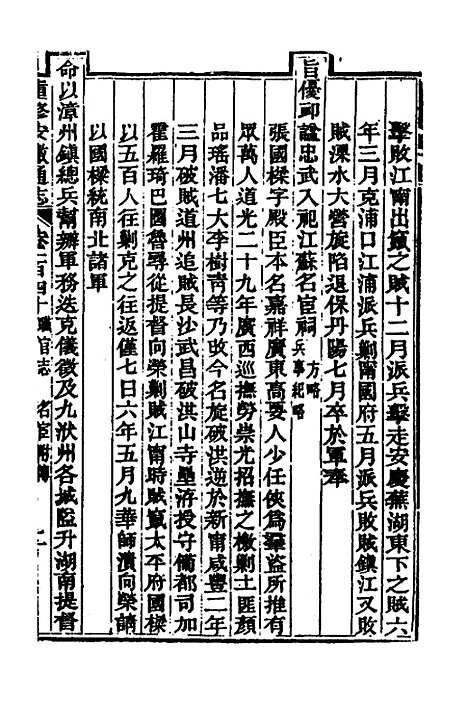 擊敗江南出竄之賊十二月派兵擊走安慶蕪湖東下之賊六
年三月克浦口江浦派兵剿甯國府五月派兵敗賊鎮江又敗
賊溧水大營旋陷退保丹陽七月卒於軍奉
旨優卹諡忠武入祀江蘇名宦祠兵事紀略方略
張國樑字殿臣本名嘉祥廣東高要人少任俠爲羣盜所推有
眾萬人道光二十九年廣西巡撫勞崇光招撫之檄剿土匪顏
品瑤潘七大李樹靑等乃改今名旋破洪逆於新甯咸豐二年
三月破賊道州追賊長沙武昌破洪山寺壘洊授守備都司加
霍羅琦巴圖魯尋從提督向榮剿賊江南時賊竄太平府國樑
以五百人往剿克之往返僅七日六年五月九華師潰向榮請
以國樑統南北諸軍
命以漳州鎮總兵幫辦軍務迭克儀徵及九洑州各城隘升湖南提督
重修安徽通志 卷一百四十 職官志 名宦附傳